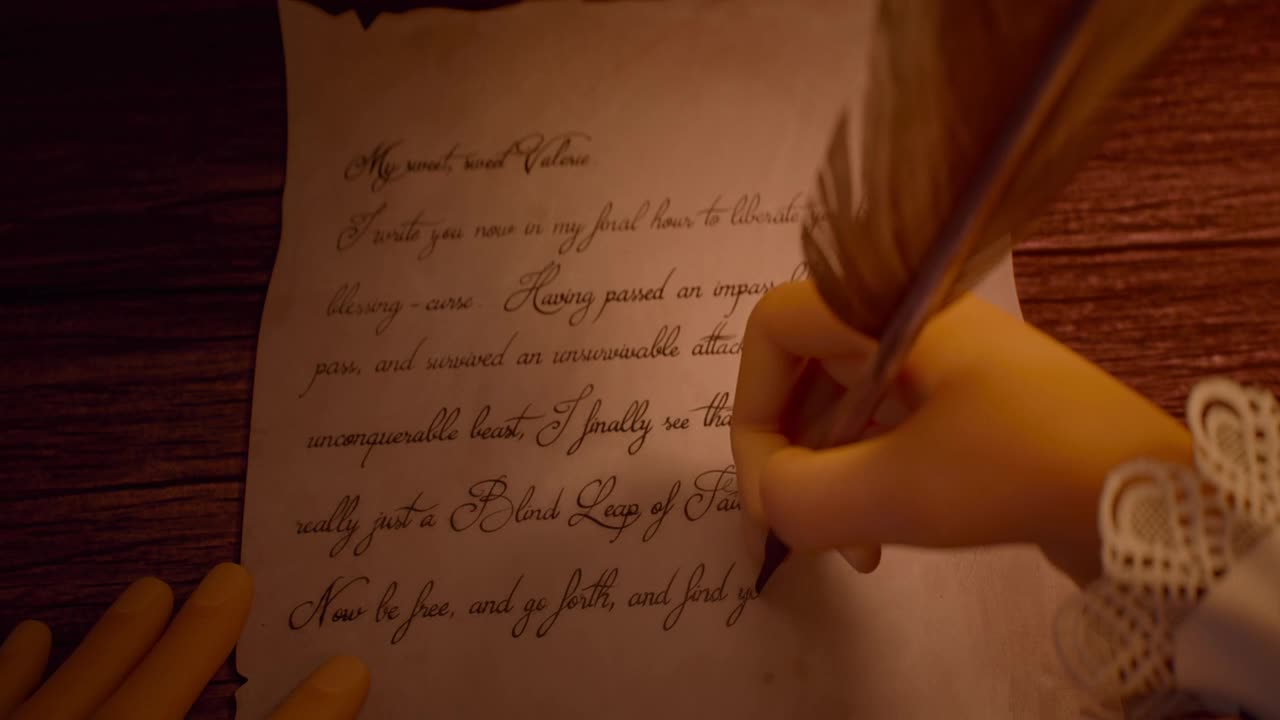 My sweet, sweet Valerie.
I write you now in my final hour to liberate
blessing-curse. Having passed an
pass, and survived an unsurvivable
unconquerable beast, I finally see
really just a Blind Leap of
Now be free, and go forth, and find